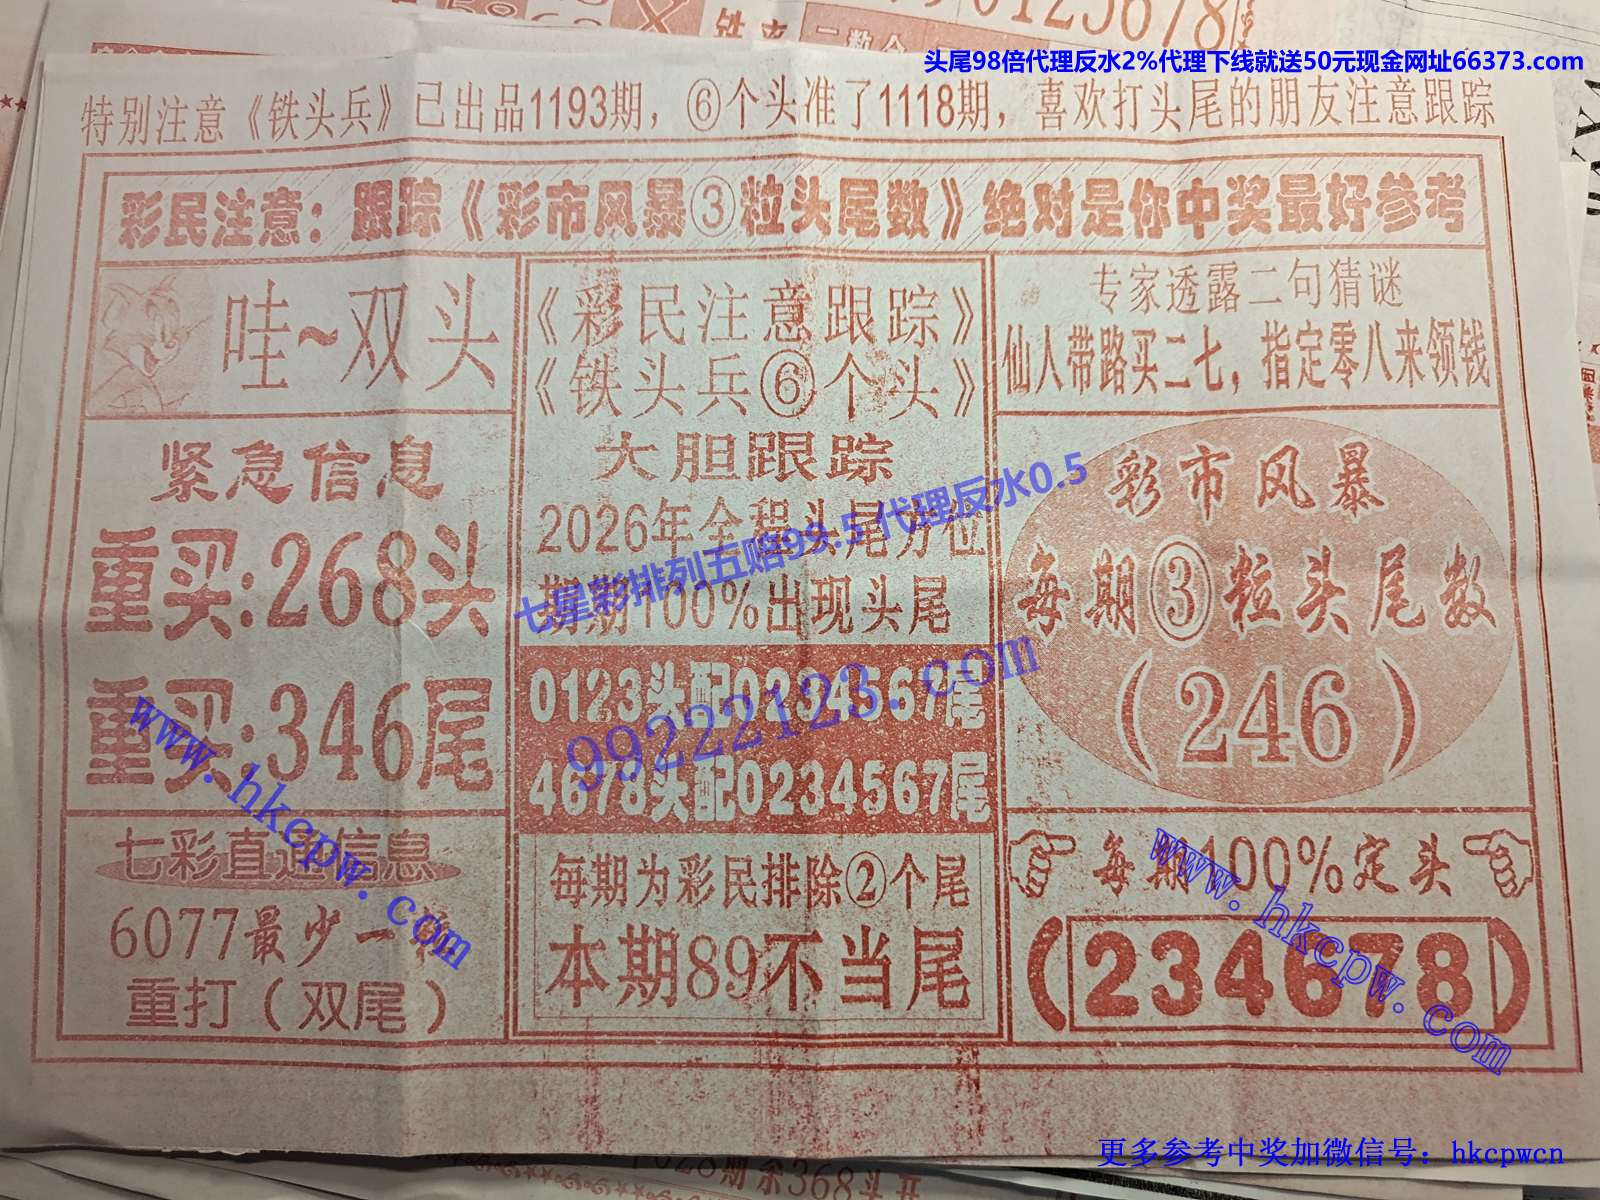 头尾98倍代理反水2%代理下线就送50元现金网址66373.com
特别注意《铁头兵》已出品1193期，⑥个头准了1118期，喜欢打头尾的朋友注意跟踪
彩民注意：跟踪《彩市风暴③粒头尾数》绝对是你中奖最好参考
哇~双头
紧急信息
重买:268头
重买:346尾
七彩直通信息
6077最少一
重打（双尾）
《彩民注意跟踪》
《铁头兵⑥个头》
大胆跟踪
2026年全程头尾方位
期期100%出现头尾
0123头配0234567尾
4678头配0234567尾
每期为彩民排除②个尾
本期89不当尾
专家透露二句猜谜
仙人带路买二七，指定零八来领钱
彩市风暴
每期③粒头尾数
（246）
每期100%定头
（234678）
七星彩排列五赔99.5 代理反水0.5
99222123.com
www.hkcpw.com
www.hkcpw.com
更多参考中奖加微信号：hkcpwcn